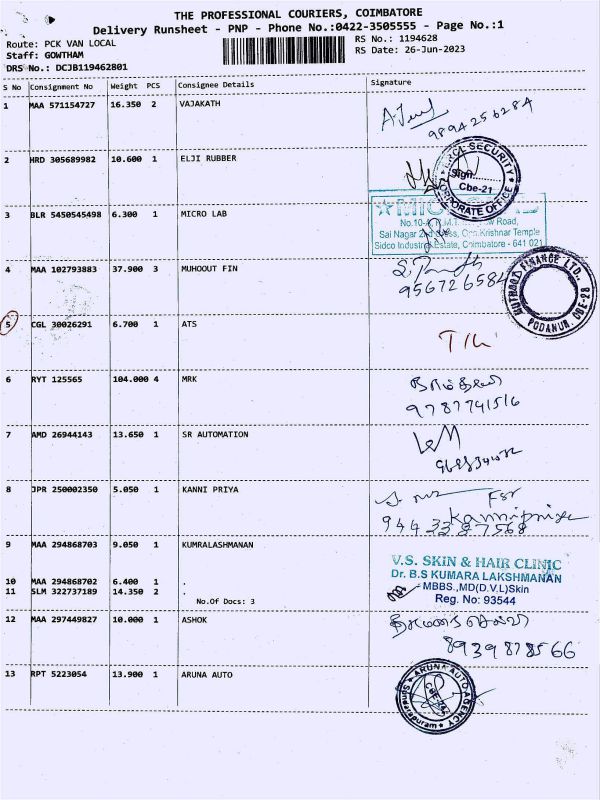 THE PROFESSIONAL COURIERS, COIMBATORE
Delivery Runsheet - PNP - Phone No.:0422-3505555 - Page No.:1
Route: PCK VAN LOCAL RS No.: 1194628
Staff: GOWTHAM RS Date: 26-Jun-2023
DRS No.: DCJB119462801
S No Consignment No Weight PCS Consignee Details Signature
1 MAA 571154727 16.350 2 VAJAKATH
9894256284
2 HRD 305689982 10.600 1 ELJI RUBBER
SECURITY
Sign
Cbe-21
CORPORATE OFFICE
3 BLR 5450545498 6.300 1 MICRO LAB
Road,
Sai Nagar Krishnar Temple
Sidco Industrial Estate, Coimbatore - 641 021
4 MAA 102793883 37.900 3 MUHOOUT FIN
956726584
MUTHOOT FINANCE LTD.,
PODANUR, CBE-23
5 CGL 30026291 6.700 1 ATS
6 RYT 125565 104.000 4 MRK
9787741516
7 AMD 26944143 13.650 1 SR AUTOMATION
8 JPR 250002350 5.050 1 KANNI PRIYA
For
Kannipriya
9443387568
9 MAA 294868703 9.050 1 KUMRALASHMANAN
V.S. SKIN & HAIR CLINIC
Dr. B.S KUMARA LAKSHMANAN
MBBS.,MD(D.V.L)Skin
Reg. No: 93544
10 MAA 294868702 6.400 1 .
11 SLM 322737189 14.350 2 .
No.Of Docs: 3
12 MAA 297449827 10.000 1 ASHOK
8939878566
13 RPT 5223054 13.900 1 ARUNA AUTO
ARUNA AUTO AGENCY
CBE-24
Sundarapuram